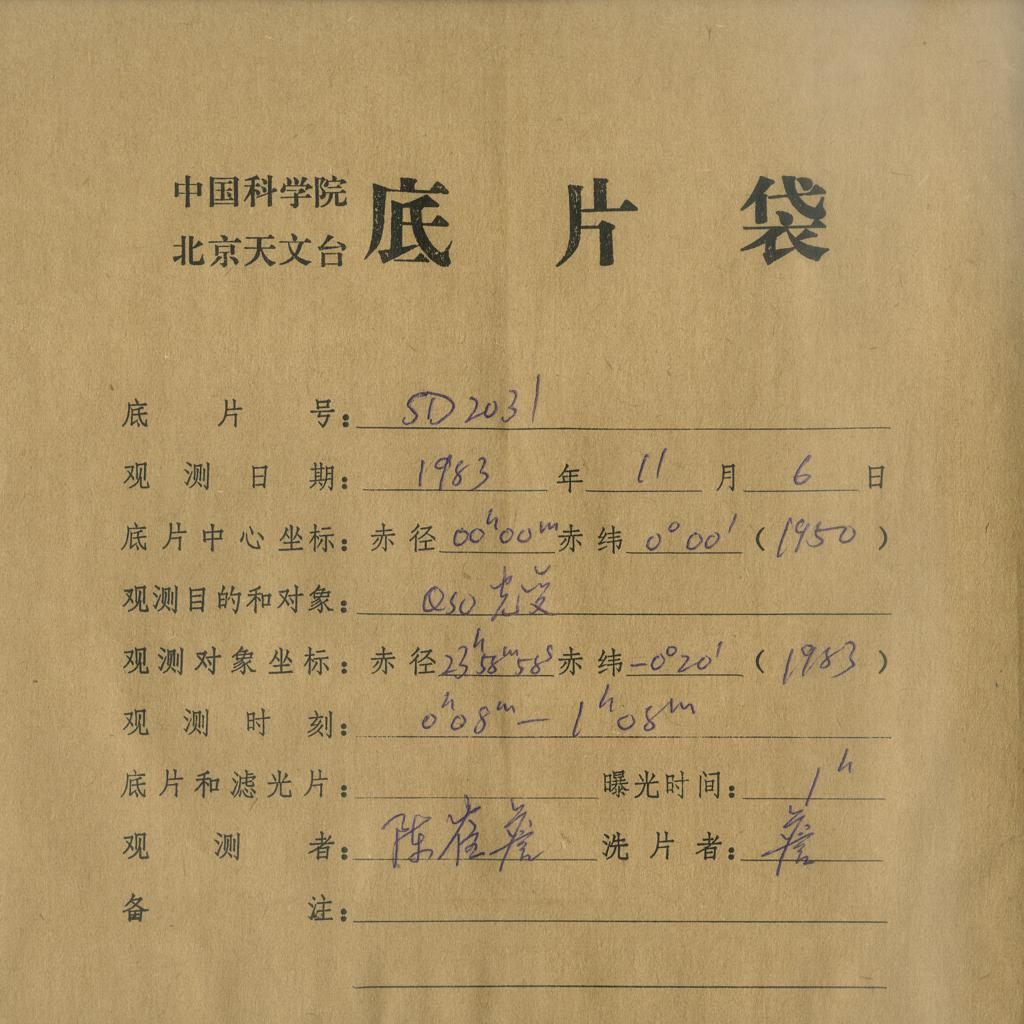 中国科学院
北京天文台
底片袋
底片号：SD2031
观测日期：1983年11月6日
底片中心坐标：赤径00ʰ00ᵐ赤纬0°00′（1950）
观测目的和对象：QSO 光变
观测对象坐标：赤径23ʰ58ᵐ58ˢ赤纬-0°20′（1983）
观测时刻：0ʰ08ᵐ—1ʰ08ᵐ
底片和滤光片： 曝光时间：1ʰ
观测者：陈崔詹 洗片者：詹
备注：